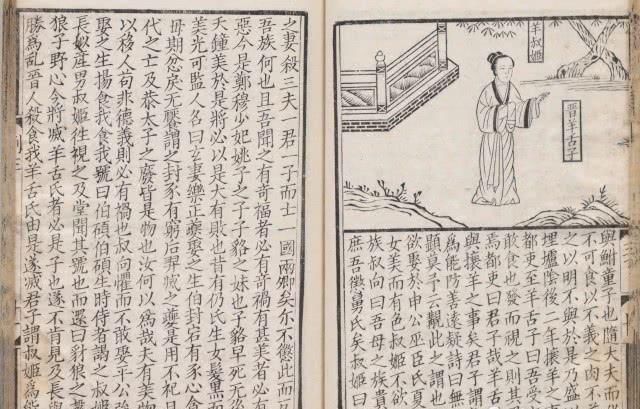 羊叔姬
晉羊舌子
與鮒童子也隨大夫而
不可食以不義之肉不
之以明不與於是乃盛
埋壚陰後二年攘羊之
都吏至羊舌子曰吾受
敢食也發而視之則其
焉都吏曰君子哉羊舌
與攘羊之事矣君子謂
為能防害遠疑詩曰無
顯莫予云覯此之謂也
欲娶於申公巫臣氏夏
女美而有色叔姬不欲
族叔向曰吾母之族貴
庶吾懲舅氏矣叔姬曰
之妻殺三夫一君一子而士一國兩卿矣尓不懲此而
吾族何也且吾聞之有奇福者必有奇禍有甚美者必有
惡今是鄭穆少妃姚子之子子貉之妹也子貉早死无後
天鍾美於是將必以是大有敗也昔有仍氏生女髮黑而
美光可監人名曰玄妻樂正夔娶之生伯封宕有豕心貪
毋期忿戾无厭謂之封豕有窮后羿滅之夔是用不祀
代之士及恭太子之廢皆是物也汝何以為哉夫有美
以移人苟非德義則必有禍也叔向懼而不敢娶平公強
娶之生揚食我食我號曰伯碩伯碩生時侍者謁之叔姬
長姒產男叔姬往視之及堂聞其號也而還曰豺狼之
狼子野心今將滅羊舌氏者必是子也遂不肯見及長與
勝為亂晉人殺食我羊舌氏由是遂滅君子謂叔姬為能